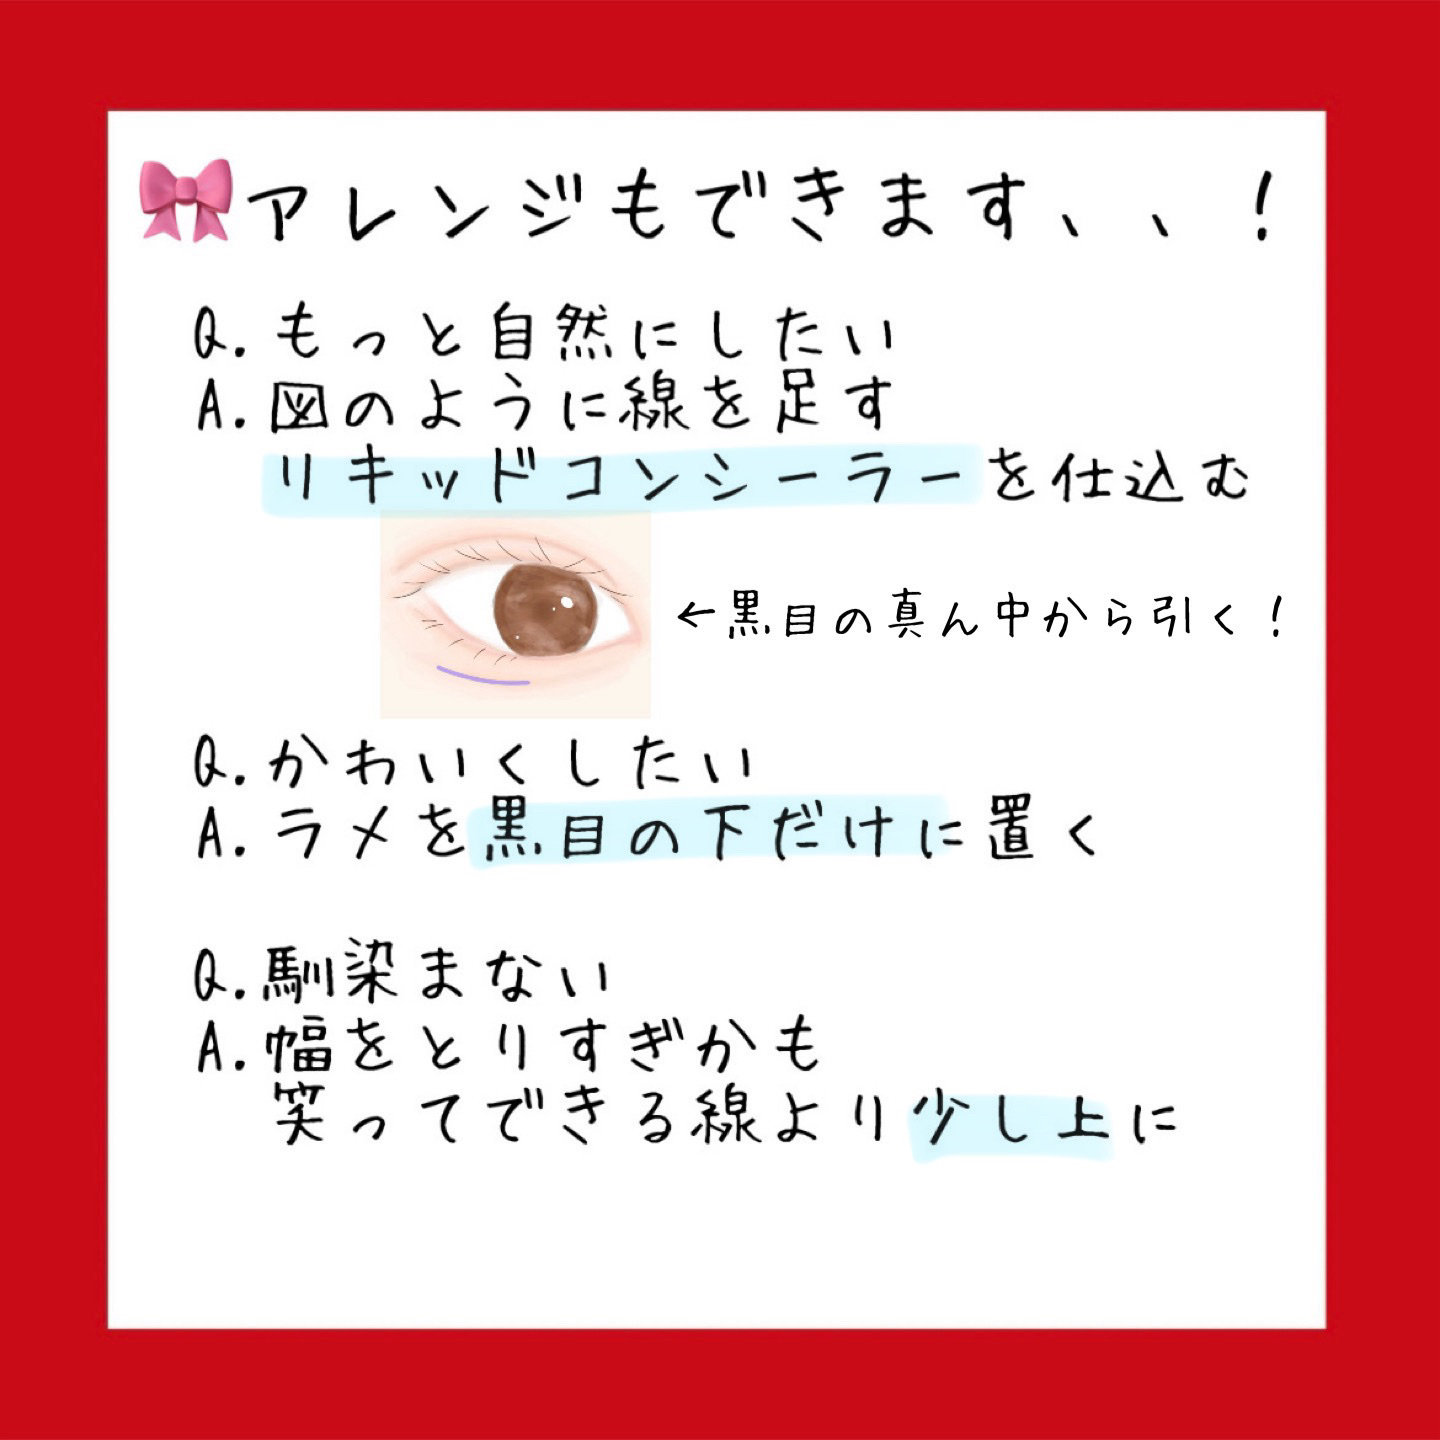 アレンジもできます、、！
Q.もっと自然にしたい
A.図のように線を足す
リキッドコンシーラーを仕込む
←黒目の真ん中から引く！
Q.かわいくしたい
A.ラメを黒目の下だけに置く
Q.馴染まない
A.幅をとりすぎかも
笑ってできる線より少し上に